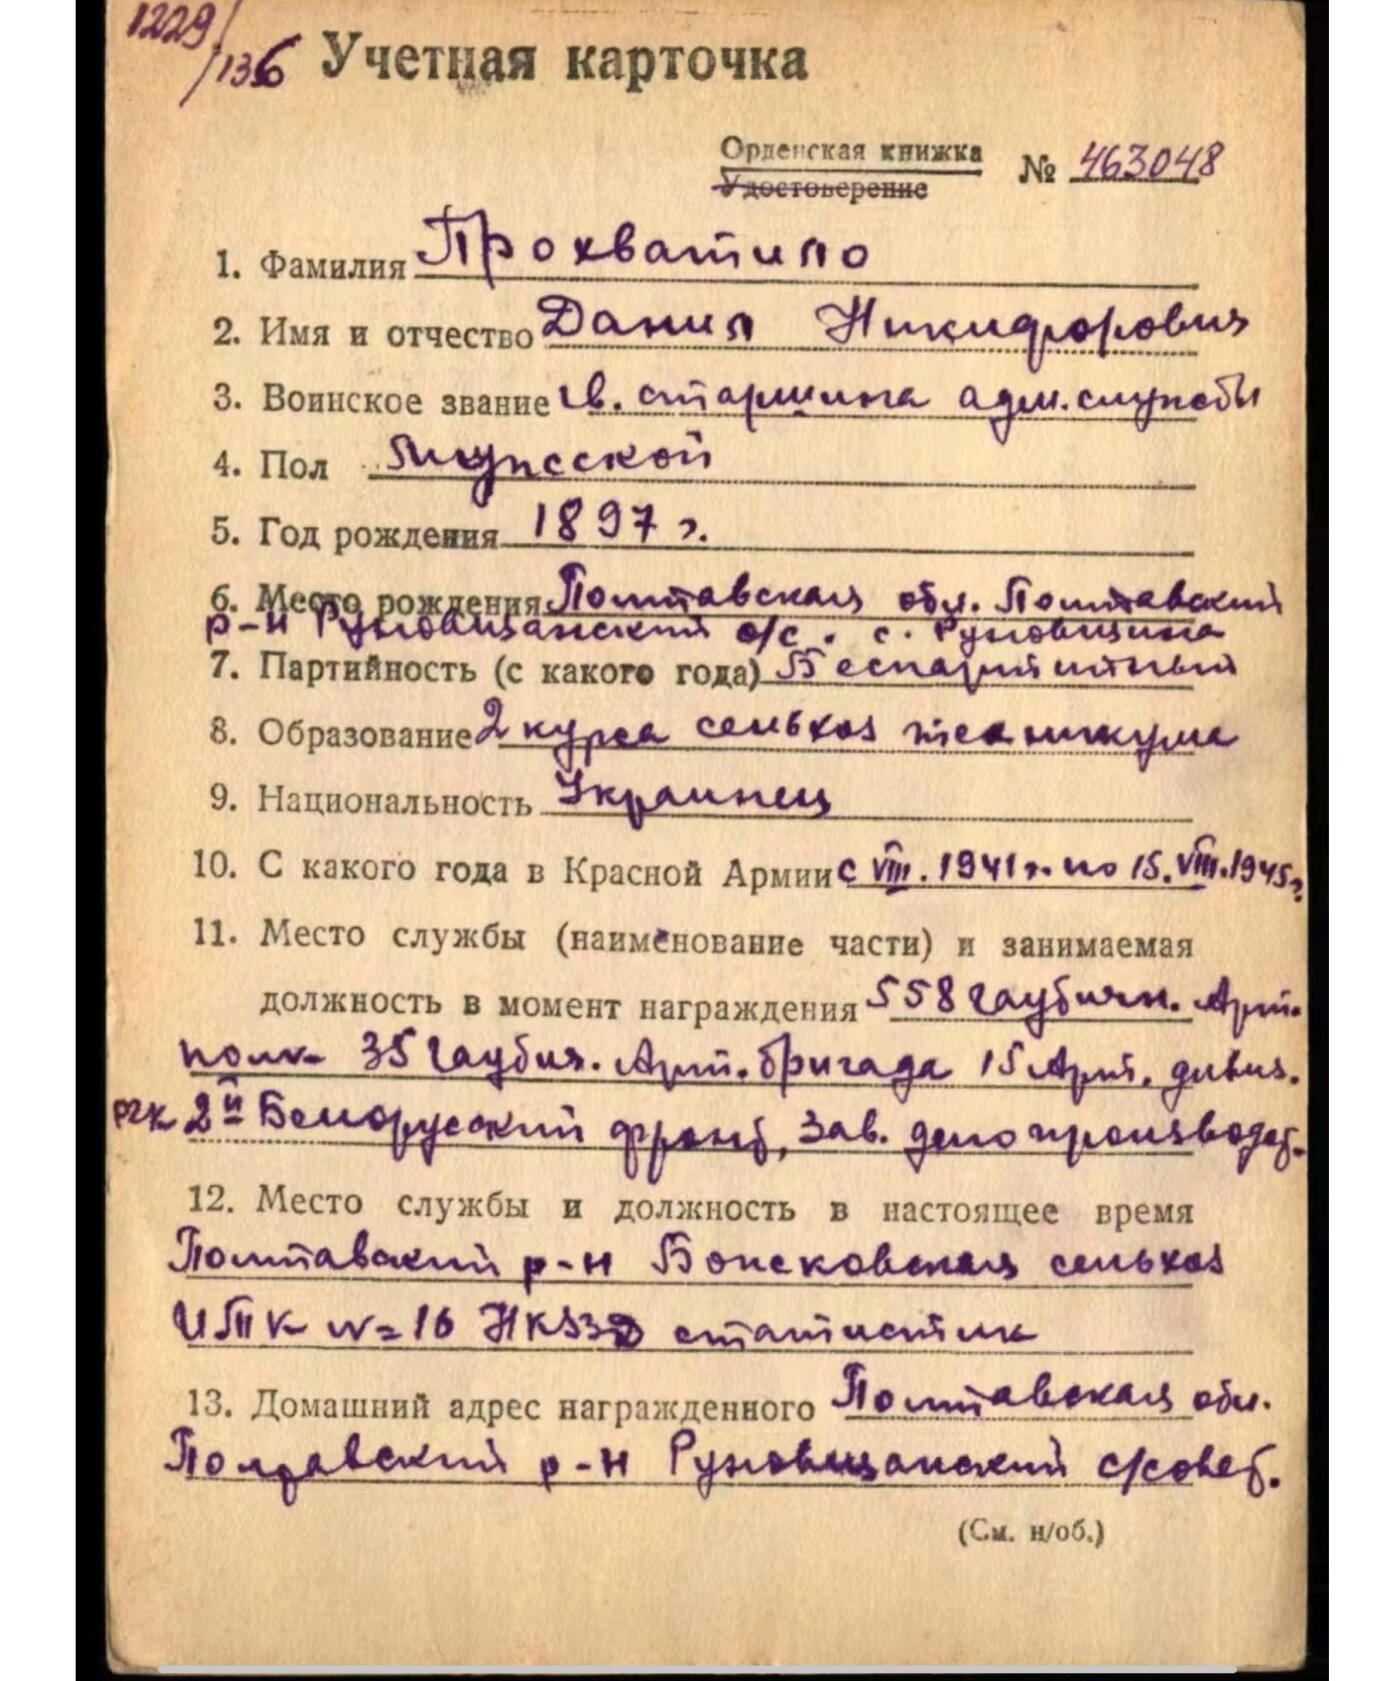 1229/136 Учетная карточка
Орденская книжка
Удостоверение № 463048
1. Фамилия Прохватило
2. Имя и отчество Данил Никифорович
3. Воинское звание гв. старшина адм. службы
4. Пол Мужсской
5. Год рождения 1897 г.
6. Место рождения Полтавская обл. Полтавский
р-н Руновщанский с/с. с. Руновщина
7. Партийность (с какого года) Беспартийный
8. Образование 2 курса сельхоз техникума
9. Национальность Украинец
10. С какого года в Красной Армии с VIII. 1941 г. по 15. VIII. 1945 г.
11. Место службы (наименование части) и занимаемая
должность в момент награждения 558 гаубичн. Арт.
полк 35 гаубич. Арт. бригада 15 Арт. дивиз.
РГК 2й Белорусский фронт, Зав. делопроизводст.
12. Место службы и должность в настоящее время
Полтавский р-н сельхоз
ИТК № 16 НКВД статистик
13. Домашний адрес награжденного Полтавская обл.
Полтавский р-н Руновщанский с/совет.
(См. н/об.)